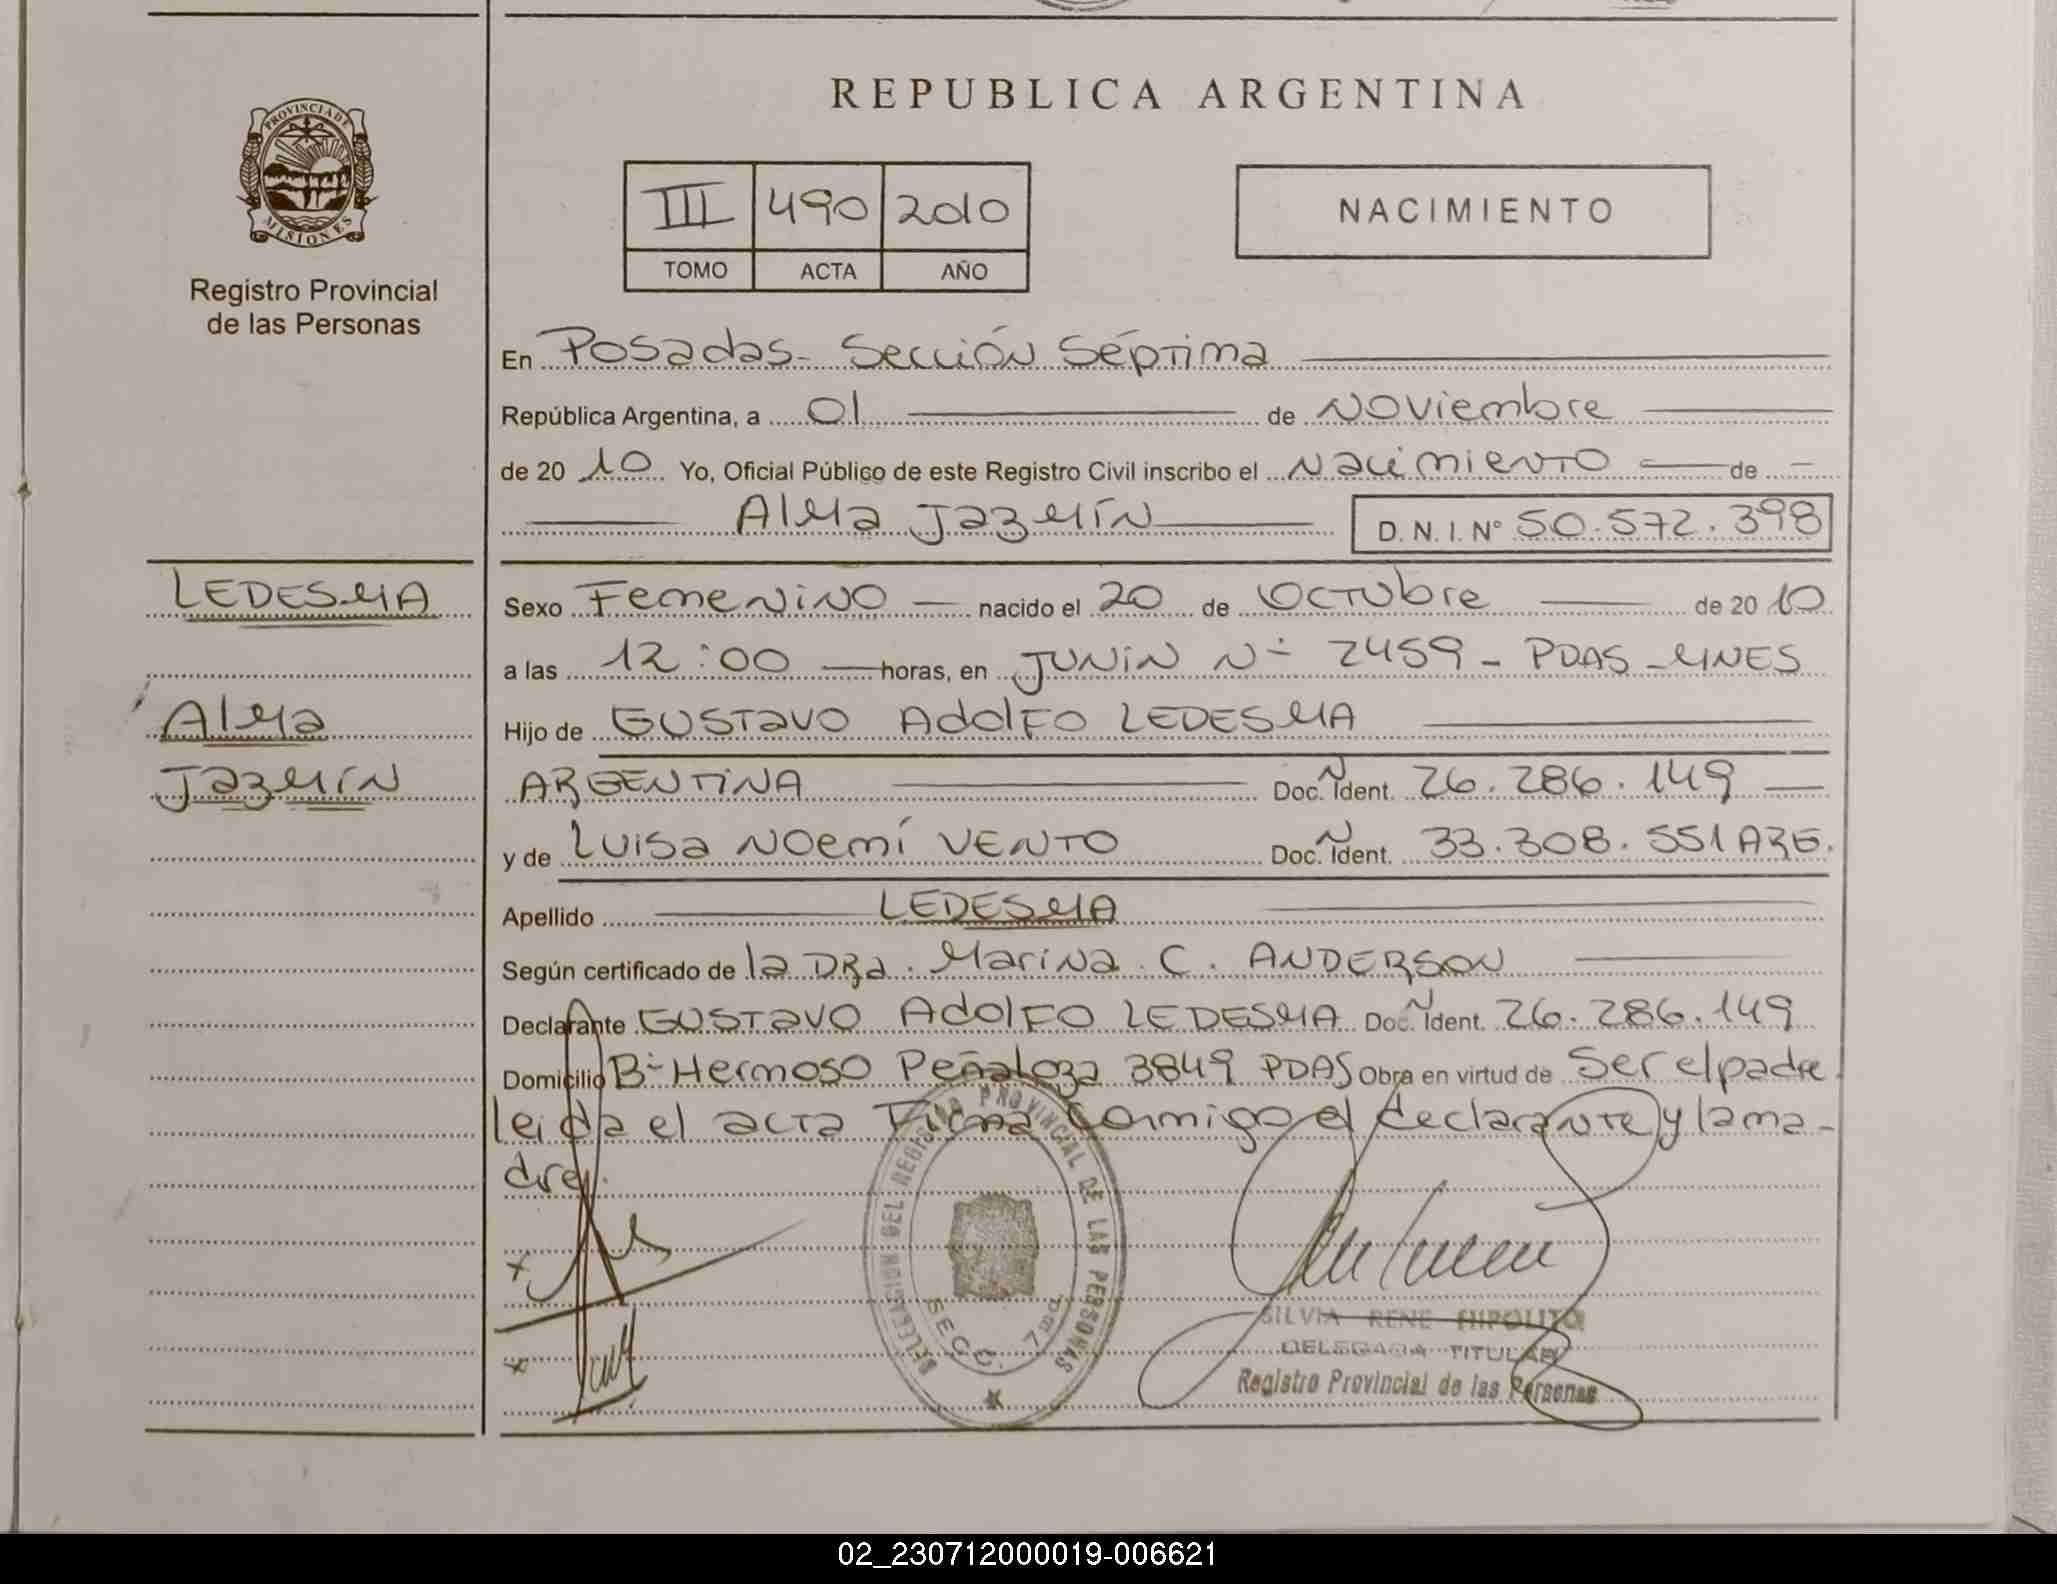 REPUBLICA ARGENTINA
PROVINCIA DE
MISIONES
Registro Provincial
de las Personas
III 490 2010
TOMO ACTA AÑO
NACIMIENTO
En Posadas - Sección Séptima
República Argentina, a 01 de Noviembre
de 2010 Yo, Oficial Público de este Registro Civil inscribo el Nacimiento de
Alma Jazmín D.N.I. Nº 50.572.398
LEDESMA
Alma
Jazmín
Sexo Femenino nacido el 20 de Octubre de 2010
a las 12:00 horas, en Junin Nº 2459 - PDAS - MNES
Hijo de Gustavo Adolfo LEDESMA
ARGENTINA Doc. Ident. 26.286.149
y de Luisa Noemí VENTO Doc. Ident. 33.308.551 ARG.
Apellido LEDESMA
Según certificado de la Dra. Marina C. ANDERSON
Declarante Gustavo Adolfo LEDESMA Doc. Ident. 26.286.149
Domicilio Bº Hermoso Peñaloza 3849 PDAS Obra en virtud de Ser el padre.
leida el acta Firma conmigo el declarante y la ma-
dre.
DELEGACION DEL REGISTRO PROVINCIAL DE LAS PERSONAS
SECC. 7ma
SILVIA RENE HIPOLITO
DELEGADA TITULAR
Registro Provincial de las Personas
02_230712000019-006621